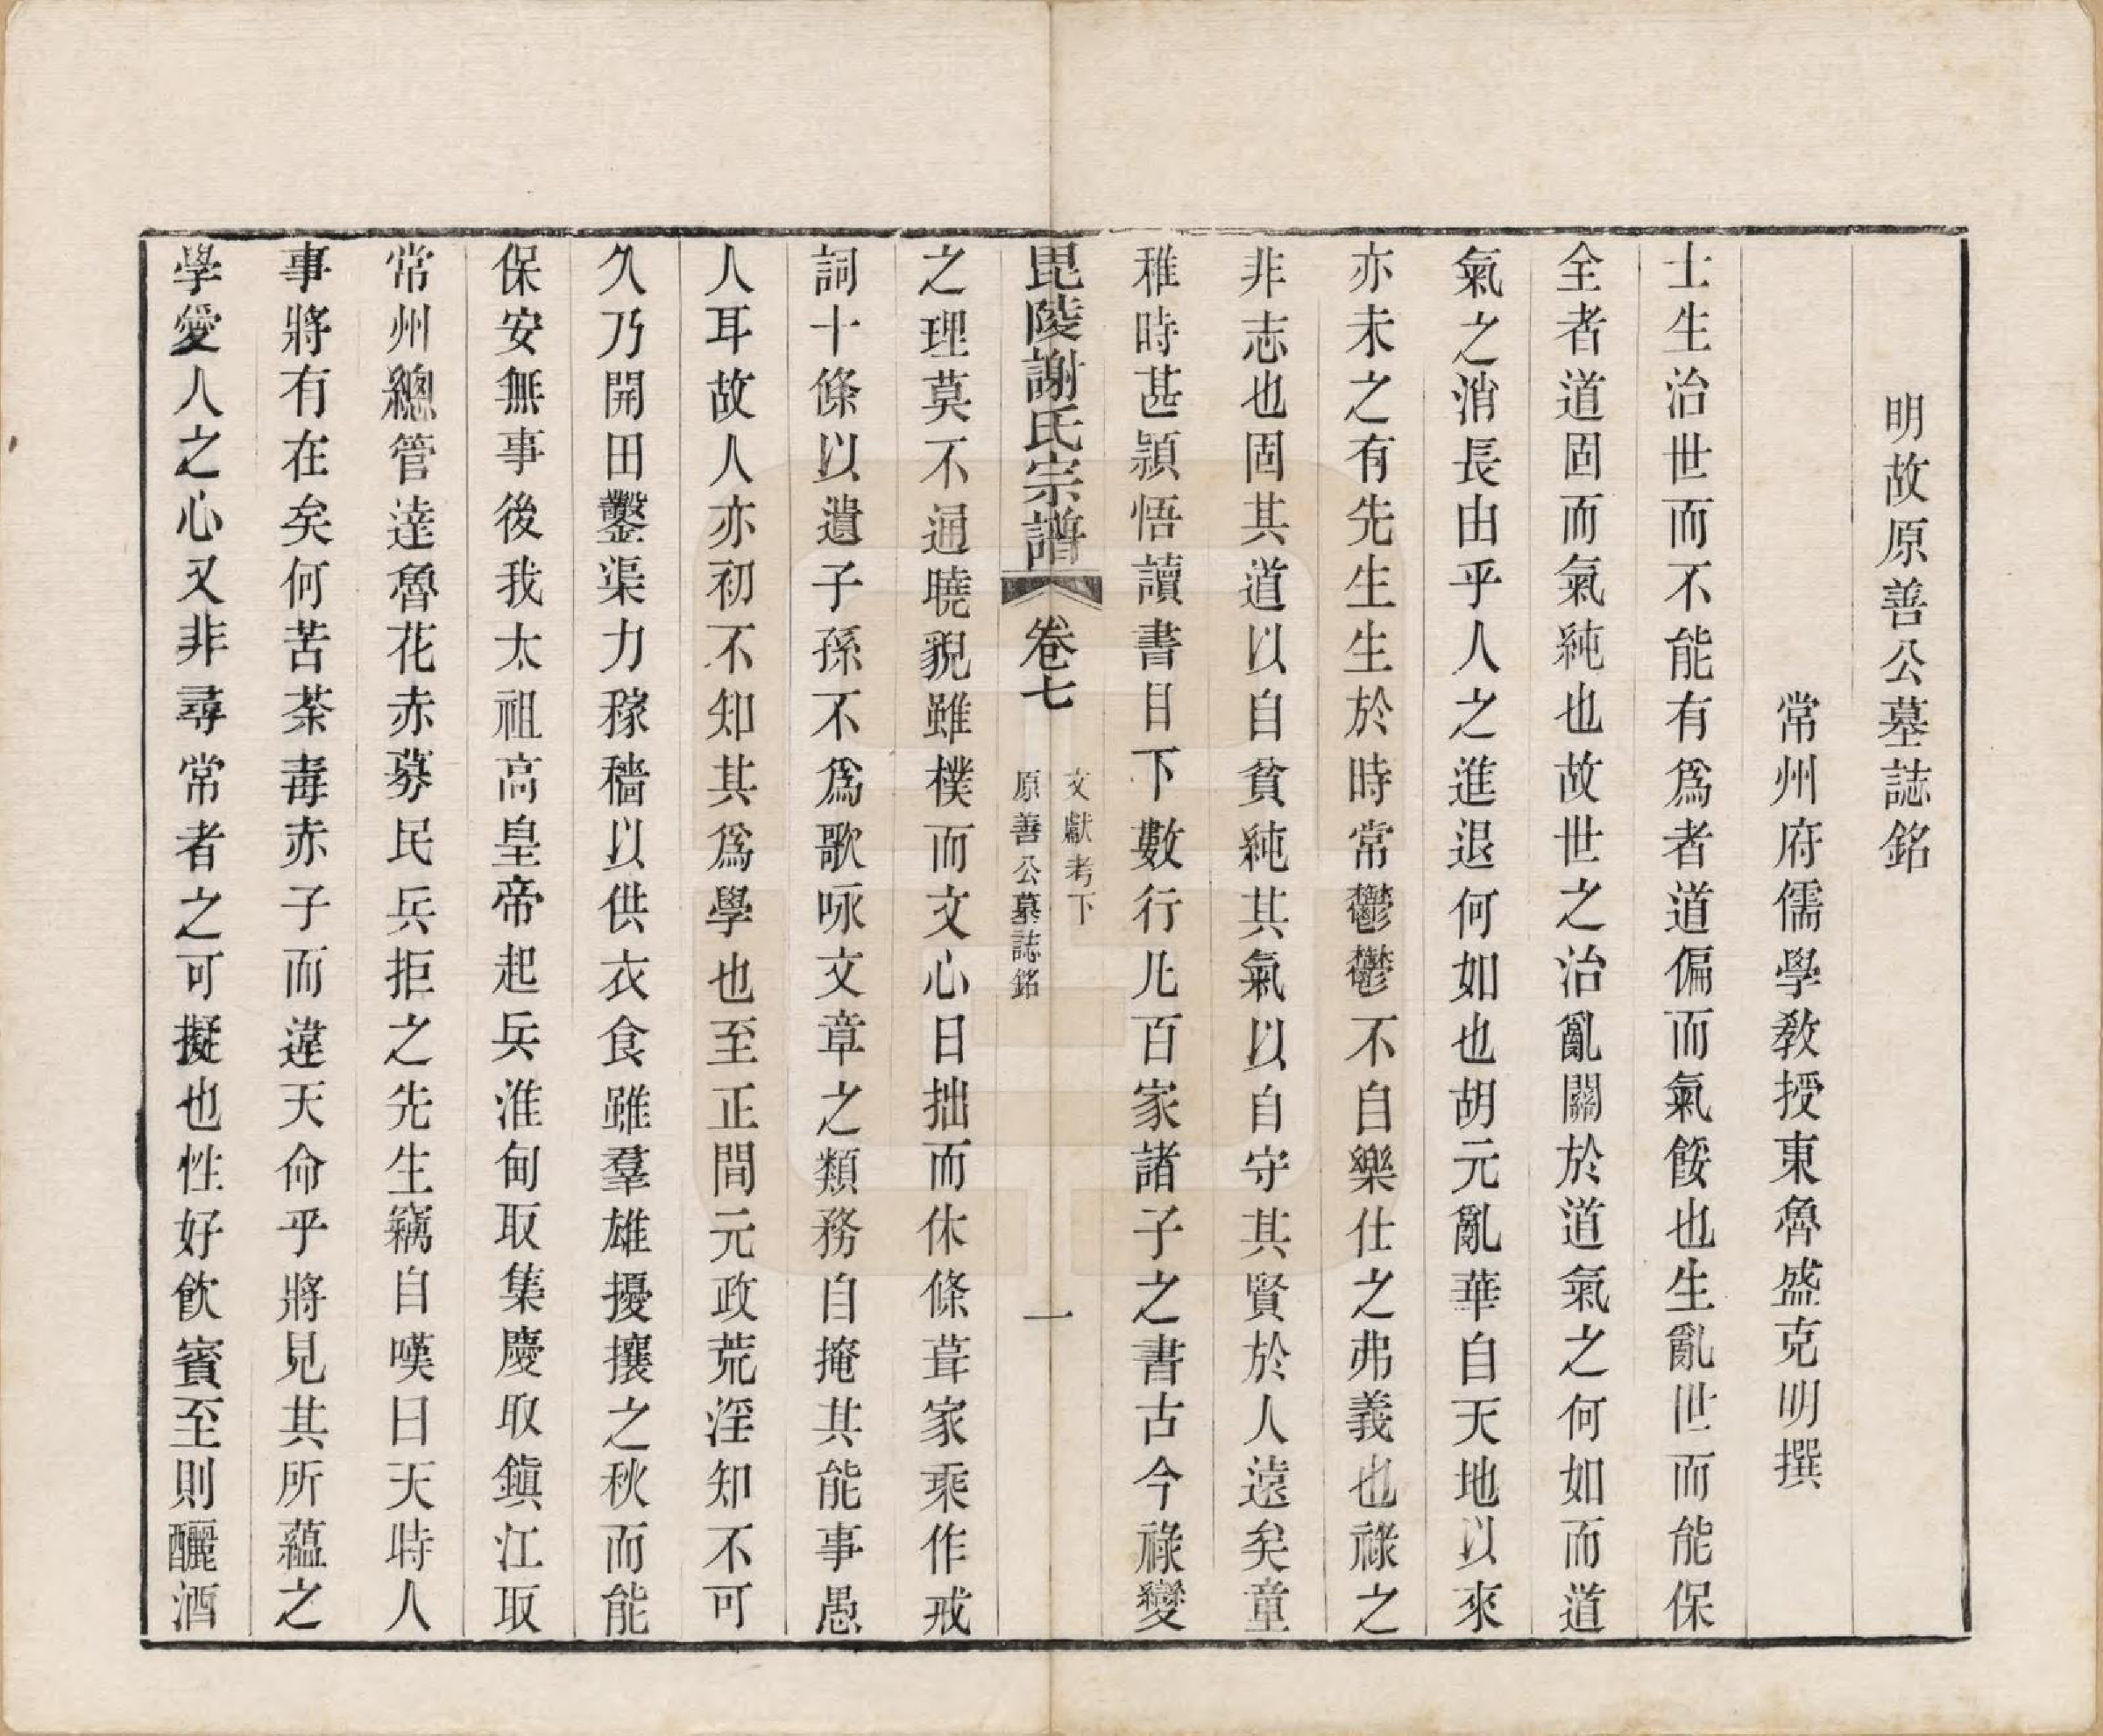 明故原善公墓誌銘
常州府儒學敎授東魯盛克明撰
士生治世而不能有爲者道偏而氣餒也生亂世而能保
全者道固而氣純也故世之治亂關於道氣之何如而道
氣之消長由乎人之進退何如也胡元亂華自天地以來
亦未之有先生生於時常鬱鬱不自樂仕之弗義也祿之
非志也固其道以自貧純其氣以自守其賢於人遠矣童
稚時甚穎悟讀書目下數行凡百家諸子之書古今祿變
毘陵謝氏宗譜 卷七 文獻考下 原善公墓誌銘 一
之理莫不通曉貌雖樸而文心日拙而休條葺家乘作戒
詞十條以遺子孫不爲歌咏文章之類務自掩其能事愚
人耳故人亦初不知其爲學也至正間元政荒淫知不可
久乃開田鑿渠力稼穡以供衣食雖羣雄擾攘之秋而能
保安無事後我太祖高皇帝起兵淮甸取集慶取鎭江取
常州總管達魯花赤募民兵拒之先生竊自嘆曰天時人
事將有在矣何苦荼毒赤子而違天命乎將見其所蘊之
學愛人之心又非尋常者之可擬也性好飮賓至則釃酒